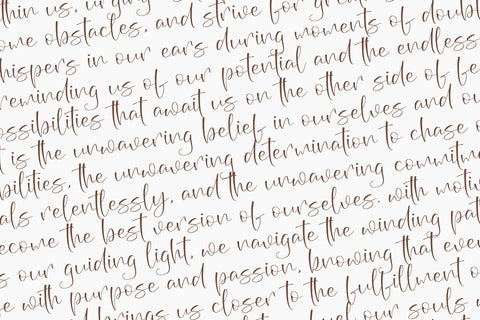 within us, urging
ome obstacles, and strive for great
whispers in our ears during moments of doubt
reminding us of our potential and the endless
ossibilities that await us on the other side of fe
t is the unwavering belief in ourselves and ou
bilities, the unwavering determination to chase o
als relentlessly, and the unwavering commitm
ecome the best version of ourselves. with motiv
s our guiding light, we navigate the winding pat
se with purpose and passion, knowing that ever
d brings us closer to the fulfillment o
our souls